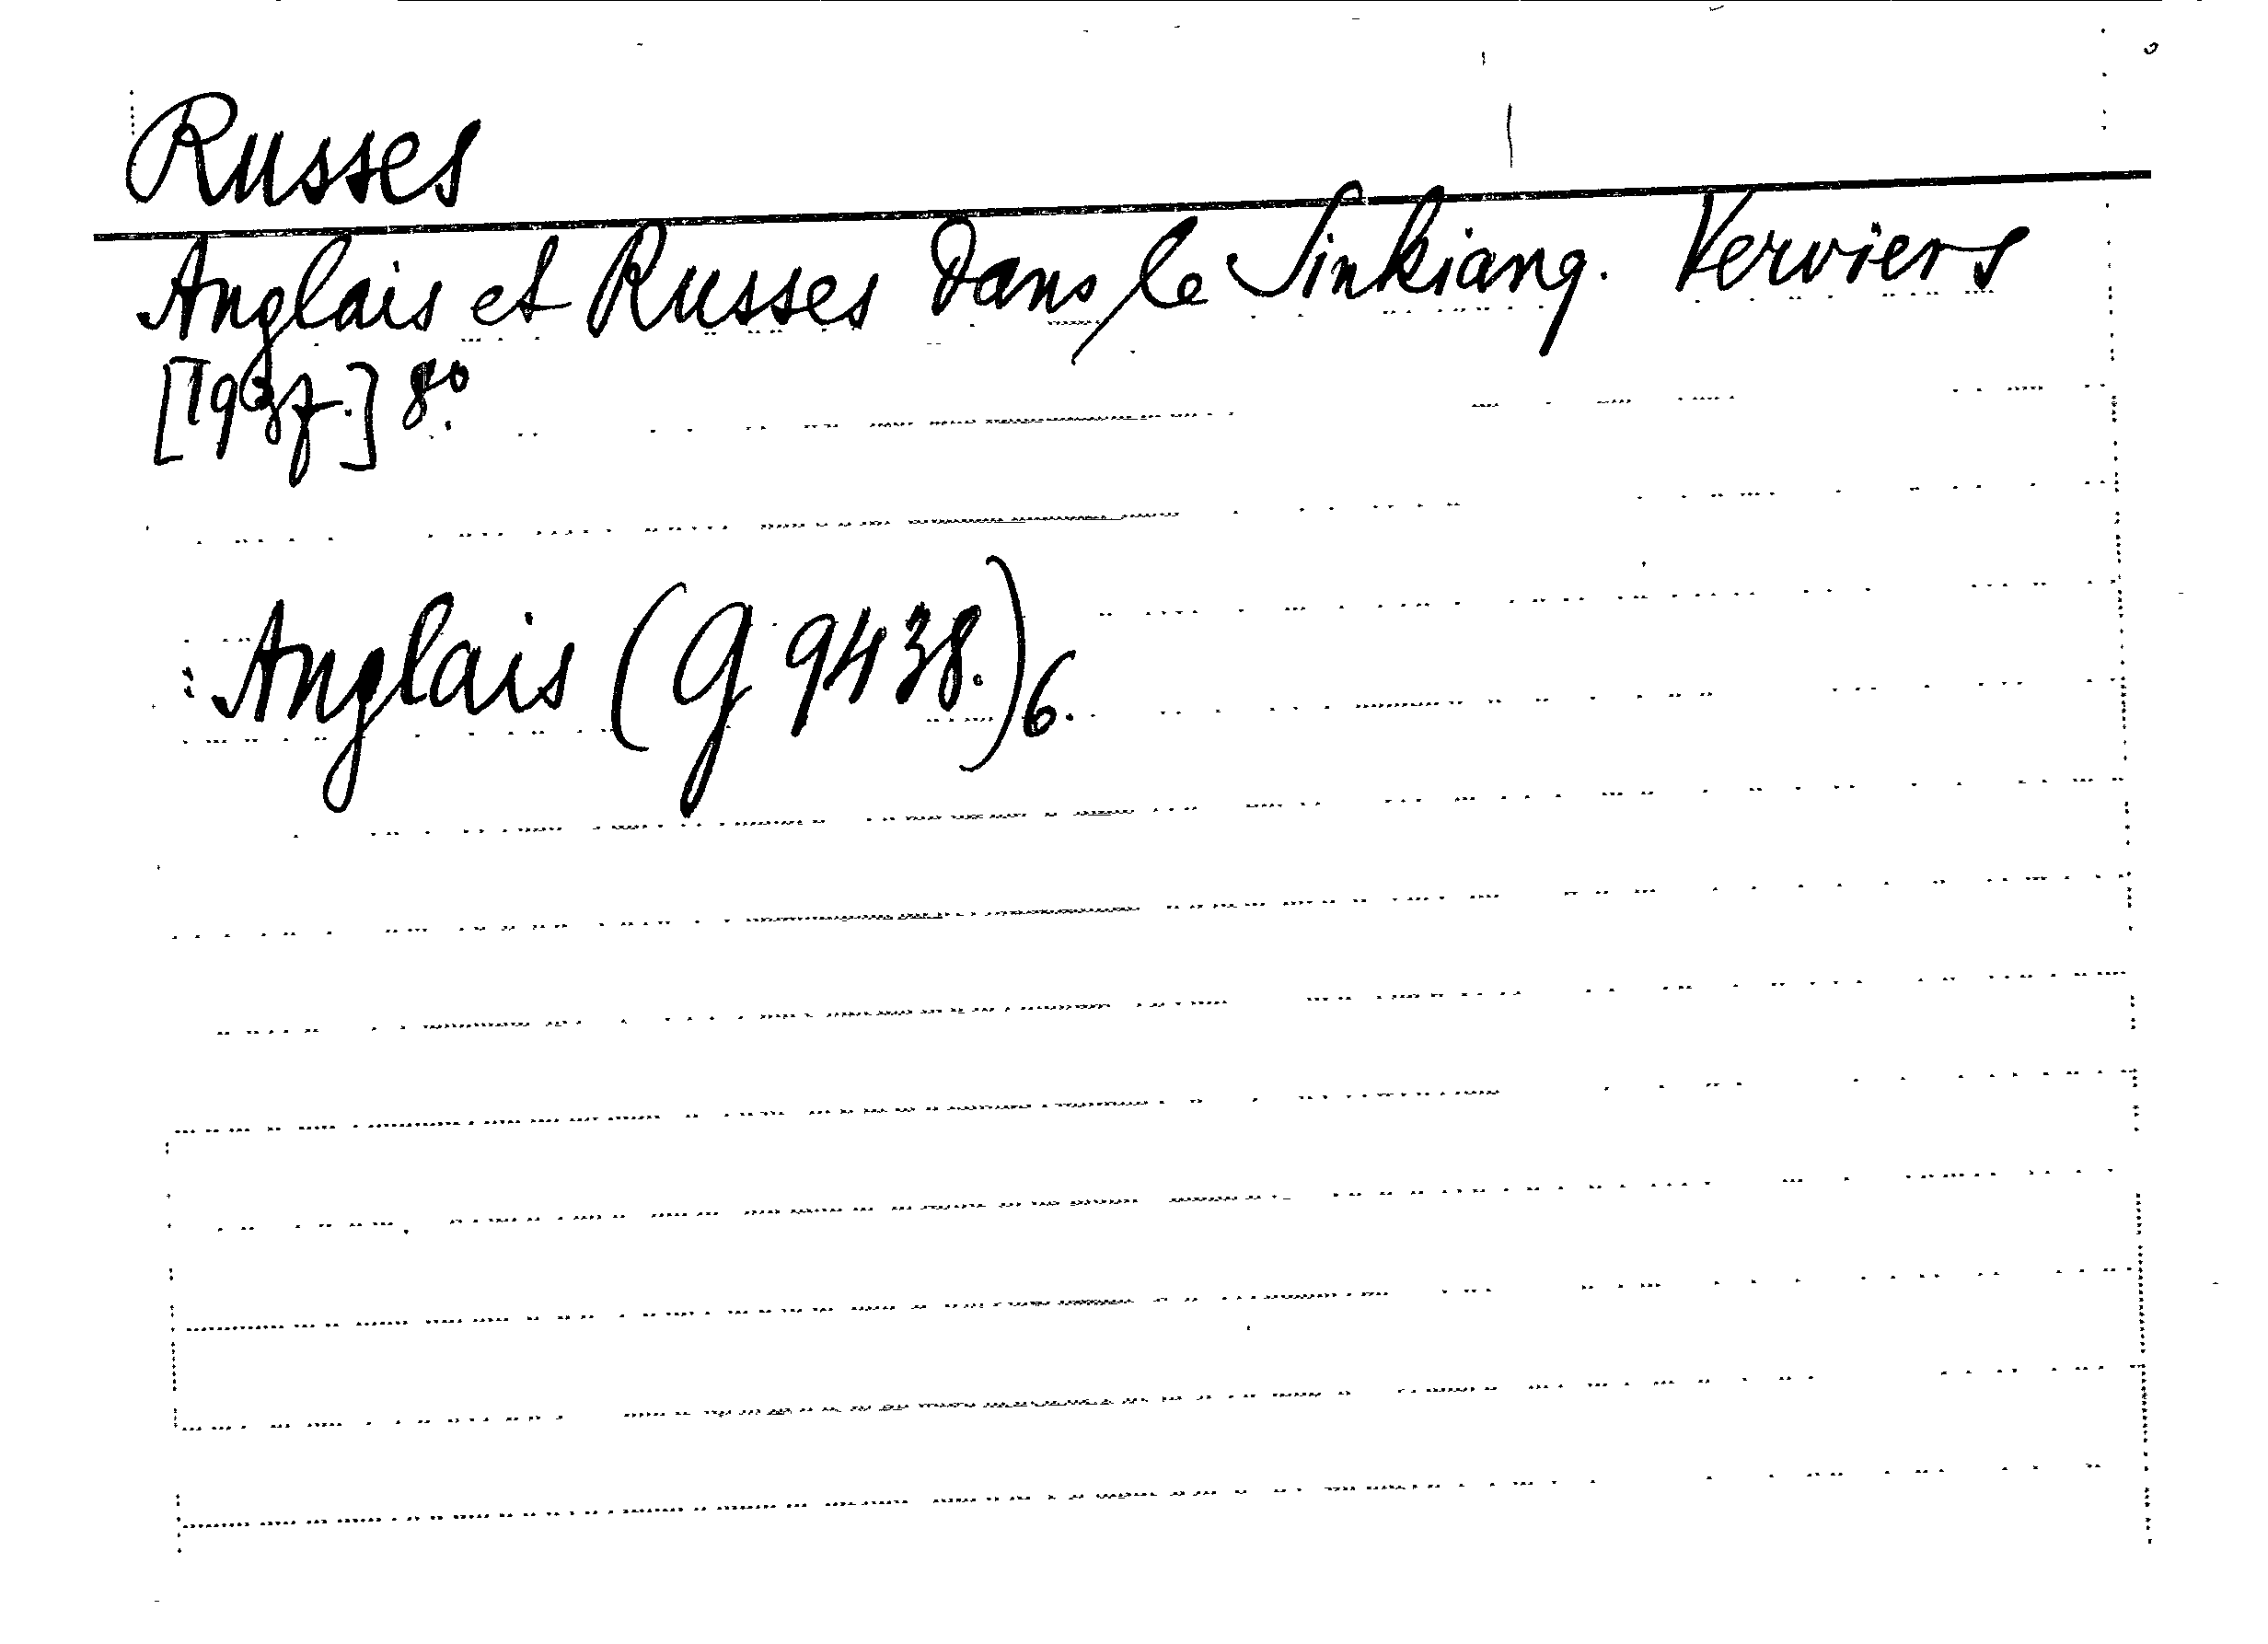 Russes
Anglais et Russes dans le Sinkiang. Verviers
[1937.] 8º.
: Anglais (G 9438.)6.